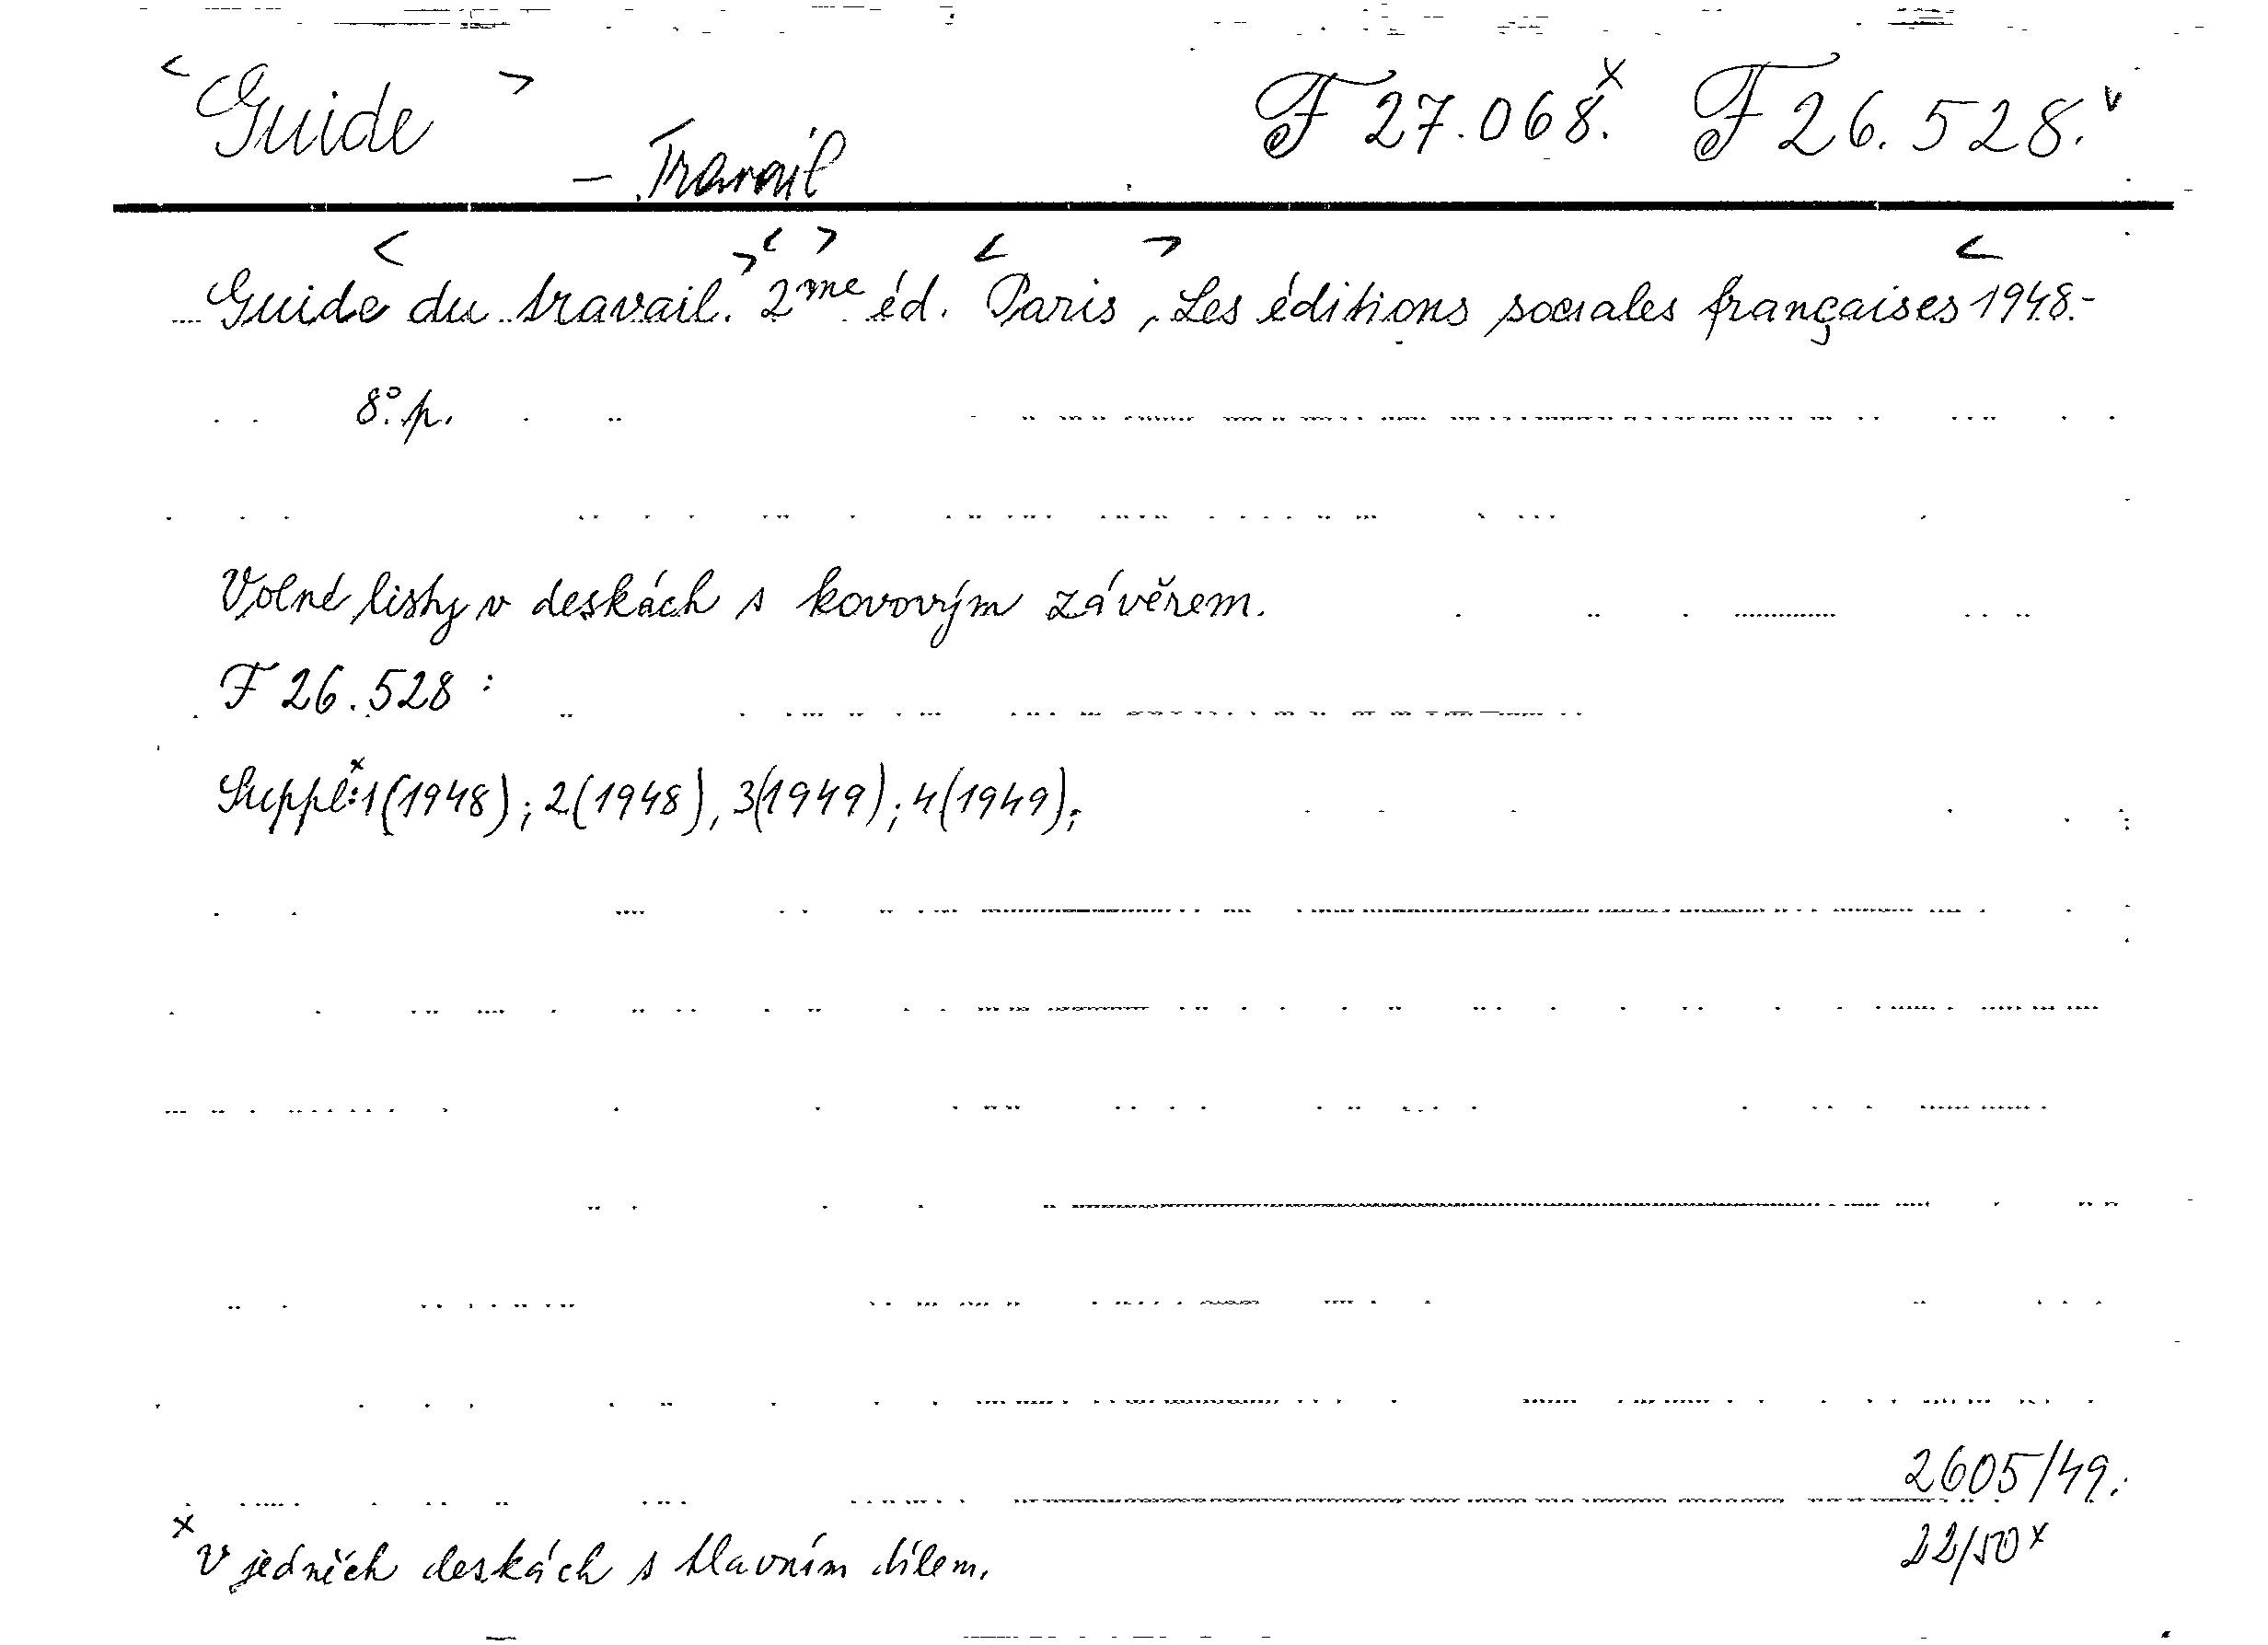 < Guide > – Travail F 27.068.x F 26.528.v
Guide < du travail. > < 2me > éd. < Paris >, Les éditions sociales françaises < 1948.-
8°. p.
Volné listy v deskách s kovovým závěrem.
F 26.528 :
Suppl.x: 1(1948); 2(1948), 3(1949); 4(1949);
2605/49.
x V jedněch deskách s hlavním dílem.
22/50 x